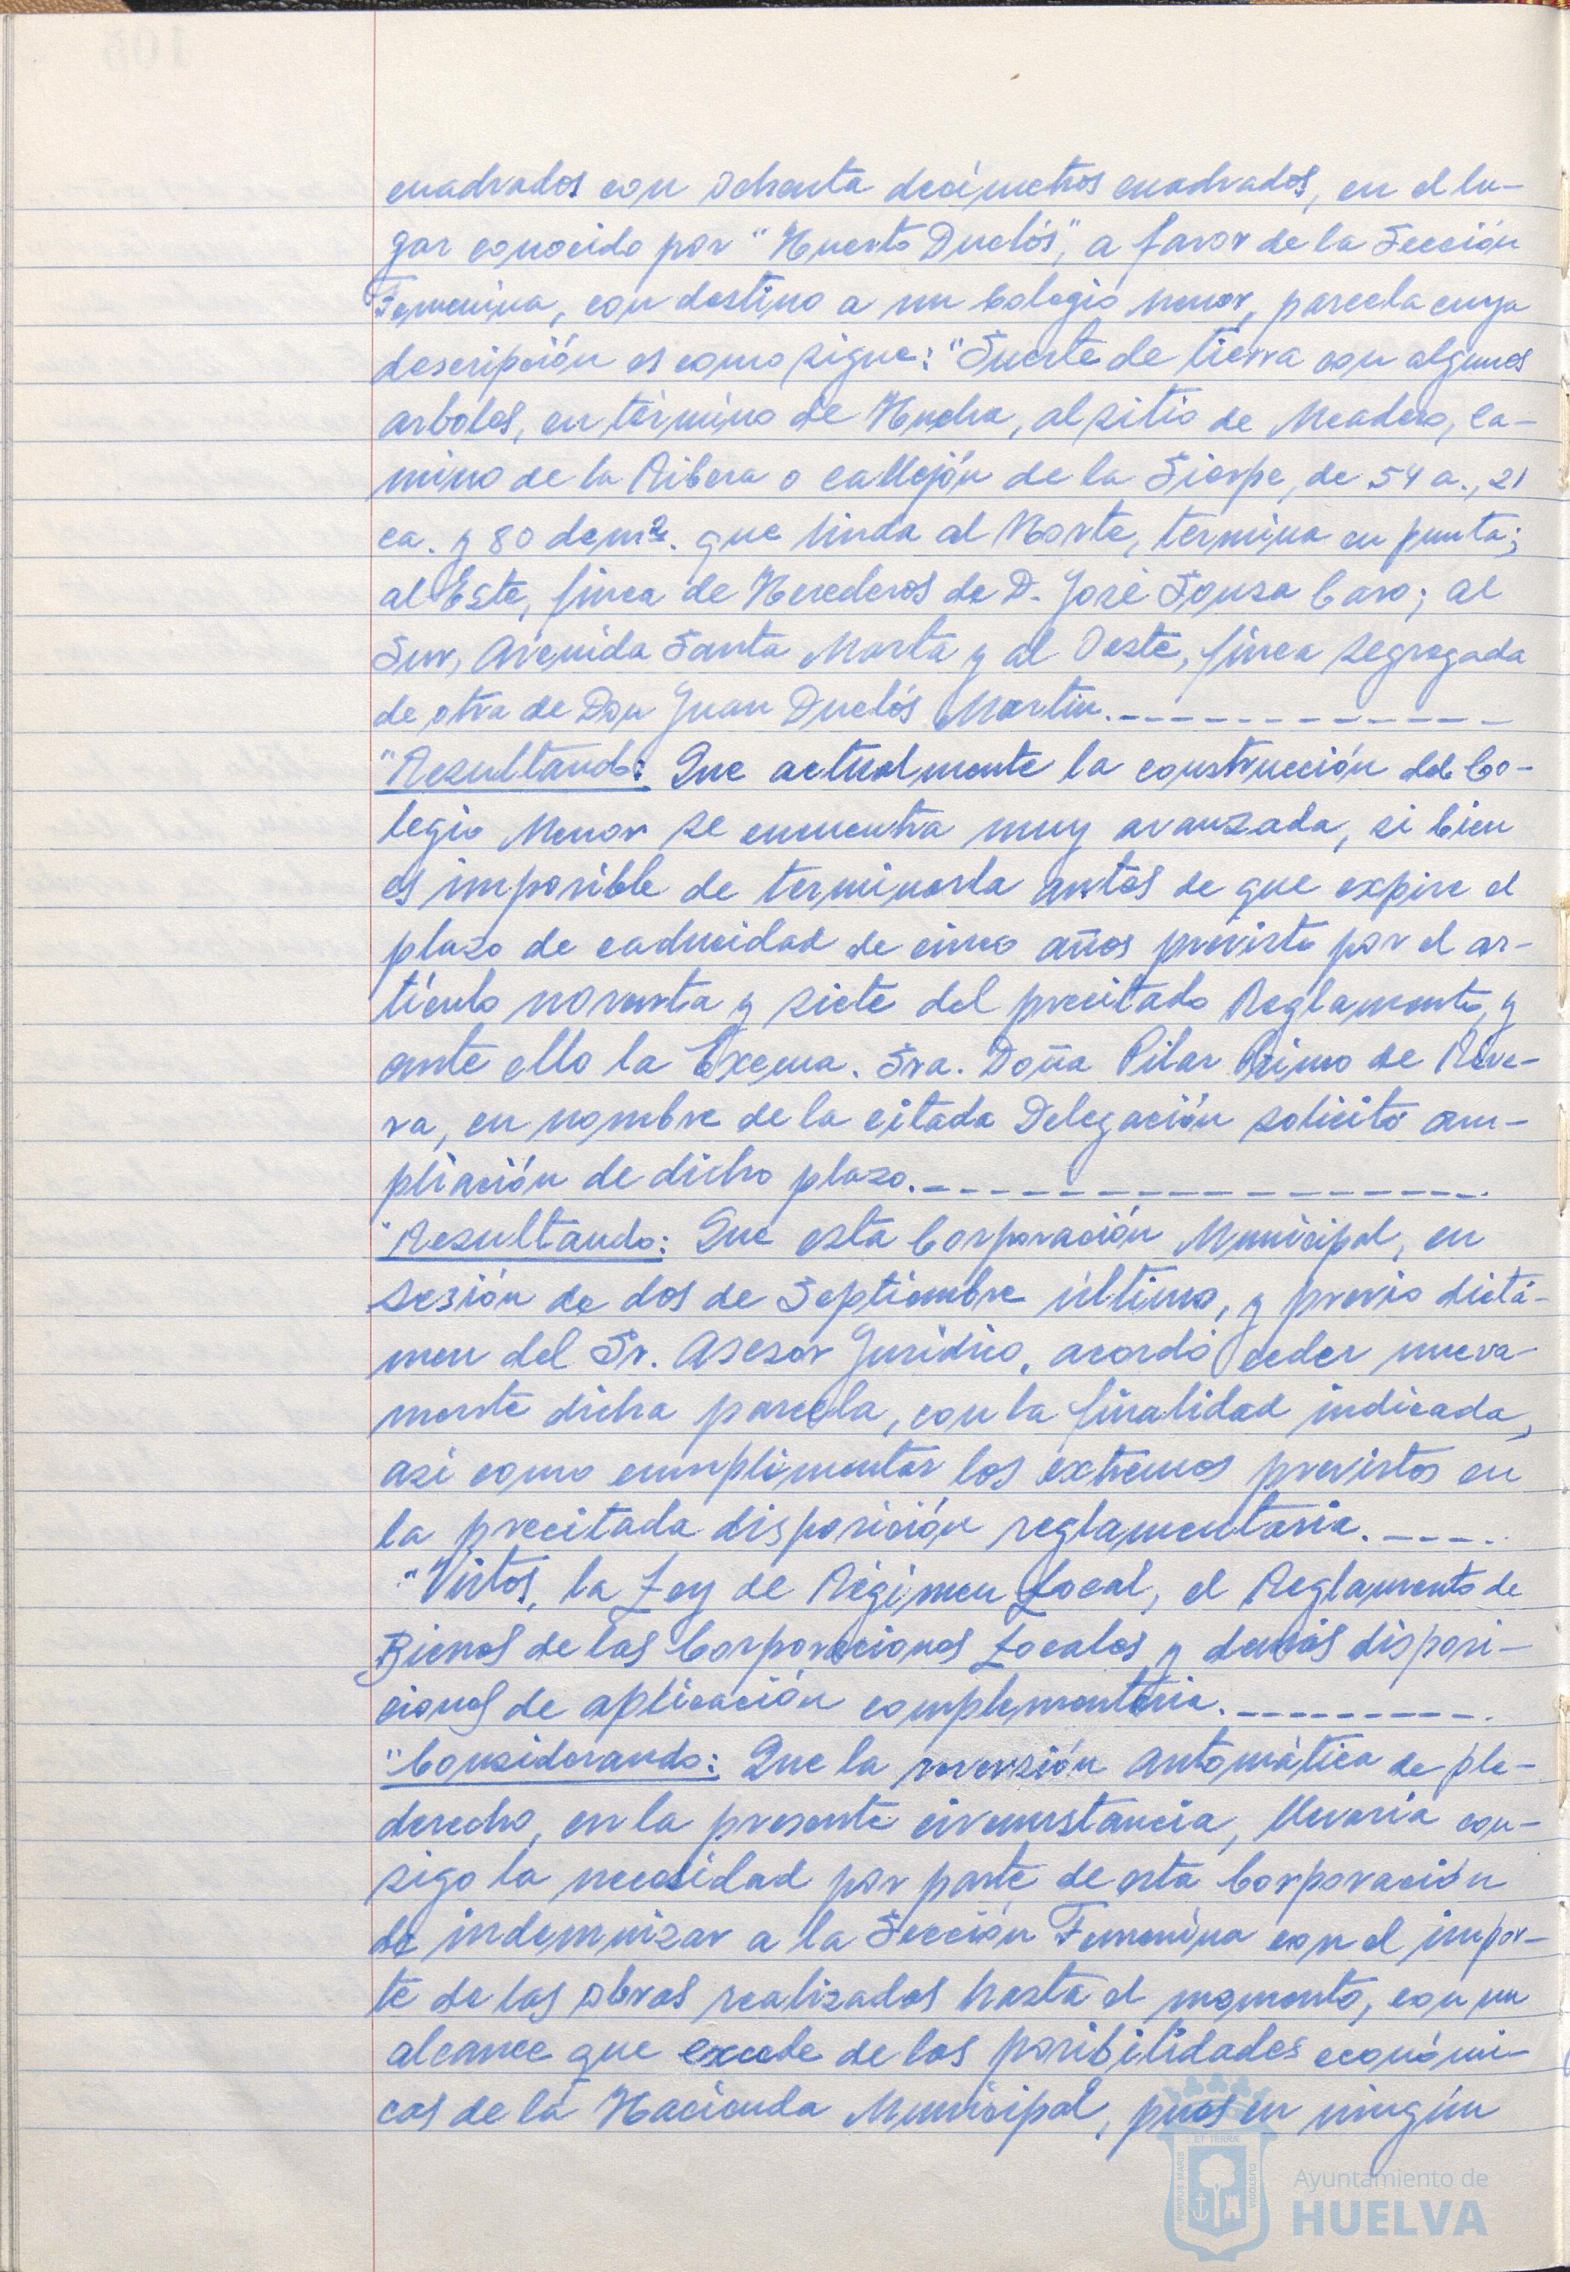 cuadrados con ochenta decímetros cuadrados, en el lu-
gar conocido por "Huerto Duclós", a favor de la Sección
Femenina, con destino a un Colegio Menor, parcela cuya
descripción es como sigue: "Suerte de tierra con algunos
arboles, en término de Huelva, al sitio de Meadero, Ca-
mino de la Ribera o callejón de la Sierpe, de 54 a., 21
ca. y 80 dcm2. que linda al Norte, termina en punta;
al Este, finca de Herederos de D. José Souza Caro; al
Sur, Avenida Santa Marta y al Oeste, finca segregada
de otra de Don Juan Duclós Martín.
"Resultando: Que actualmente la construcción del Co-
legio Menor se encuentra muy avanzada, si bien
es imposible de terminarla antes de que expire el
plazo de caducidad de cinco años previsto por el ar-
tículo noventa y siete del precitado Reglamento, y
ante ello la Excma. Sra. Doña Pilar Primo de Rive-
ra, en nombre de la citada Delegación solicitó am-
pliación de dicho plazo.
"Resultando: Que esta Corporación Municipal, en
sesión de dos de Septiembre último, y previo dictá-
men del Sr. Asesor Jurídico, acordó ceder nueva-
mente dicha parcela, con la finalidad indicada,
así como cumplimentar los extremos previstos en
la precitada disposición reglamentaria.
"Vistos, la Ley de Régimen Local, el Reglamento de
Bienes de las Corporaciones Locales y demás disposi-
ciones de aplicación complementaria.
"Considerando: Que la reversión automática de ple-
derecho, en la presente circunstancia, llevaría con-
sigo la necesidad por parte de esta Corporación
de indemnizar a la Sección Femenina con el impor-
te de las obras realizadas hasta el momento, con un
alcance que excede de las posibilidades económi-
cas de la Hacienda Municipal, pues en ningún
PORTUS MARIS ET TERRAE CUSTODIA
Ayuntamiento de
HUELVA